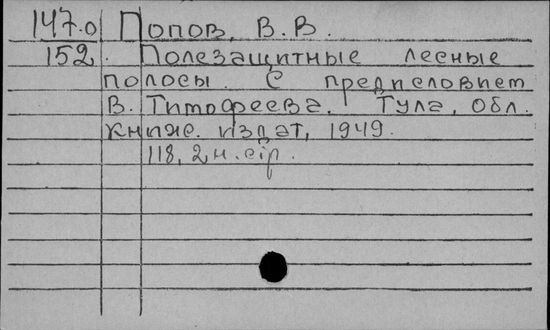 147.0 Попов, В. В.
152. Полезащитные лесные
полосы. С предисловием
В. Тимофеева. Тула, Обл.
книж. издат, 1949.
118, 2 н. стр.